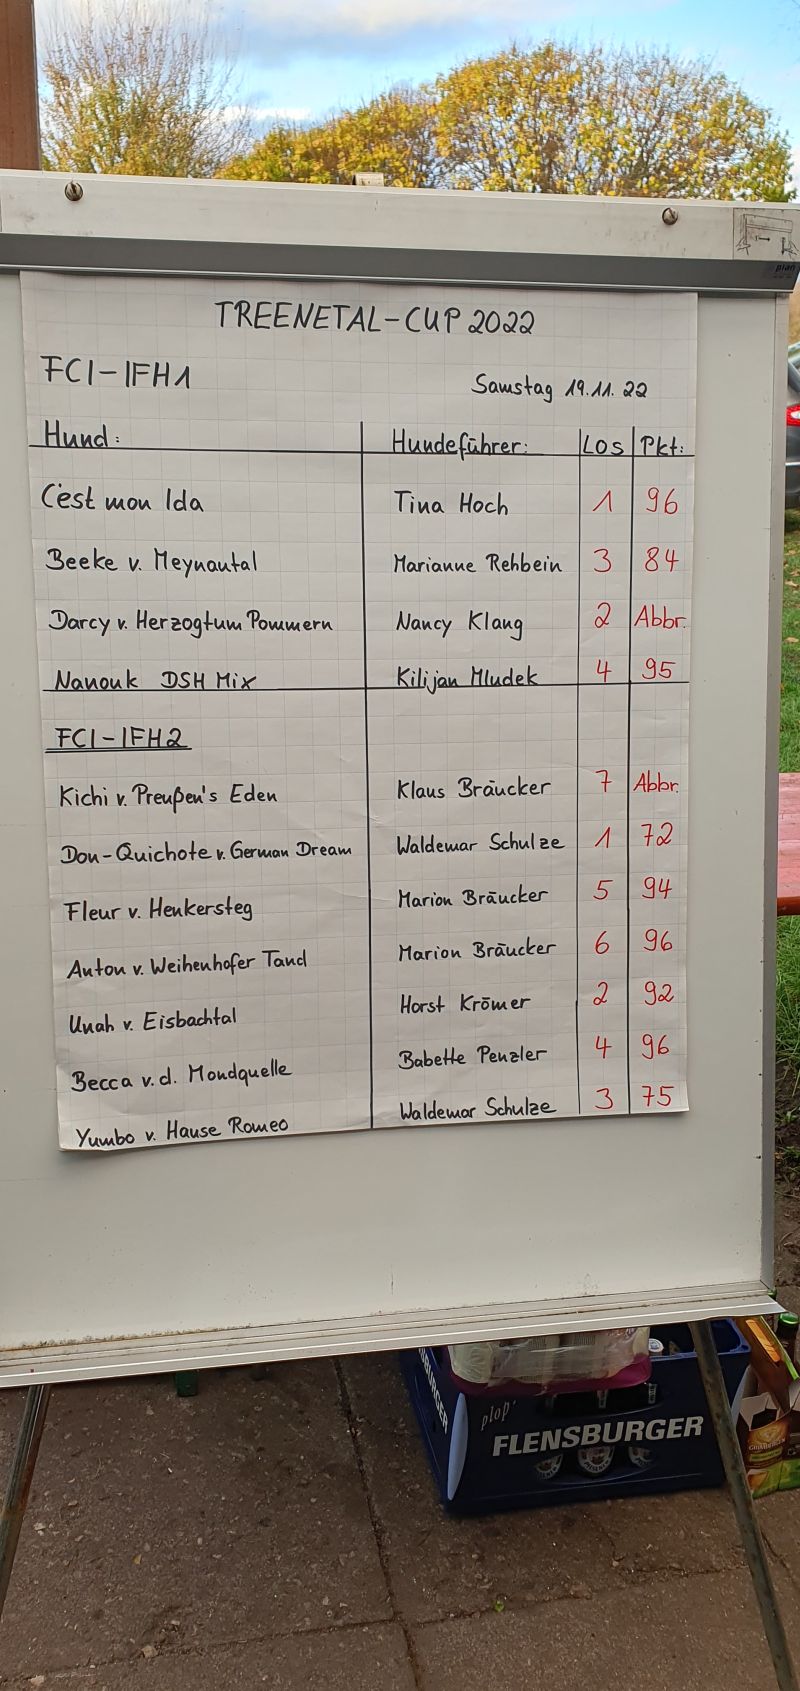 plan
TREENETAL-CUP 2022
FCI-IFH1
Samstag 19.11.22
Hund: Hundeführer: Los Pkt:
C'est mon Ida Tina Hoch 1 96
Beeke v. Meynautal Marianne Rehbein 3 84
Darcy v. Herzogtum Pommern Nancy Klang 2 Abbr.
Nanouk DSH Mix Kilijan Mludek 4 95
FCI-IFH2
Kichi v. Preußen's Eden Klaus Bräucker 7 Abbr.
Don-Quichote v. German Dream Waldemar Schulze 1 72
Fleur v. Henkersteg Marion Bräucker 5 94
Anton v. Weihenhofer Tand Marion Bräucker 6 96
Unah v. Eisbachtal Horst Krömer 2 92
Becca v. d. Mondquelle Babette Penzler 4 96
Yumbo v. Hause Romeo Waldemar Schulze 3 75
plop'
FLENSBURGER